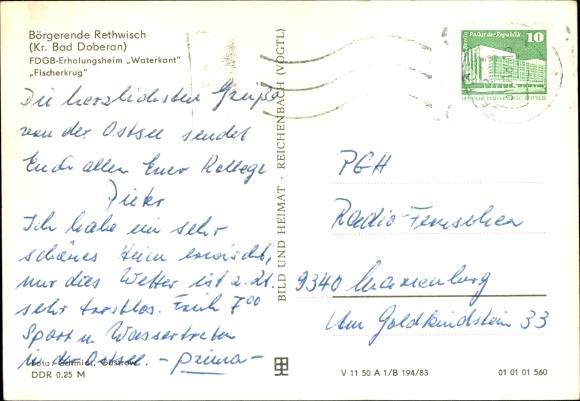 Börgerende Rethwisch
(Kr. Bad Doberan)
FDGB-Erholungsheim „Waterkant"
„Fischerkrug"
Die herzlichsten Grüße
von der Ostsee sendet
Euch allen Euer Kollege
Dieter
Ich habe ein sehr
schönes Heim erwischt,
nur das Wetter ist z. Zt.
sehr trostlos. Früh 7⁰⁰
Sport u Wassertreten
in der Ostsee. – prima –
Foto: Schmidt, Güstrow
DDR 0.25 M
BILD UND HEIMAT · REICHENBACH (VOGTL)
Palast der Republik
10
PGH
Radio-Fernsehen
9340 Marienberg
Am Goldkindstein 33
V 11 50 A 1/B 194/83
01 01 01 560